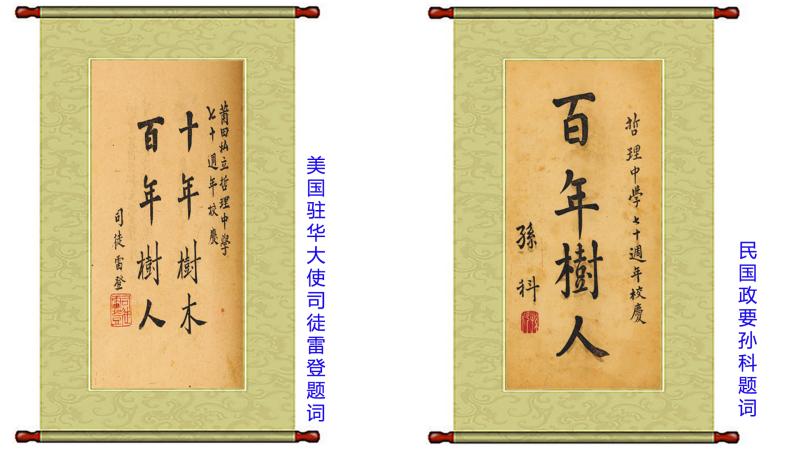 莆田私立哲理中學
七十週年校慶
十年樹木
百年樹人
司徒雷登
美国驻华大使司徒雷登题词
哲理中學七十週年校慶
百年樹人
孫科
民国政要孙科题词